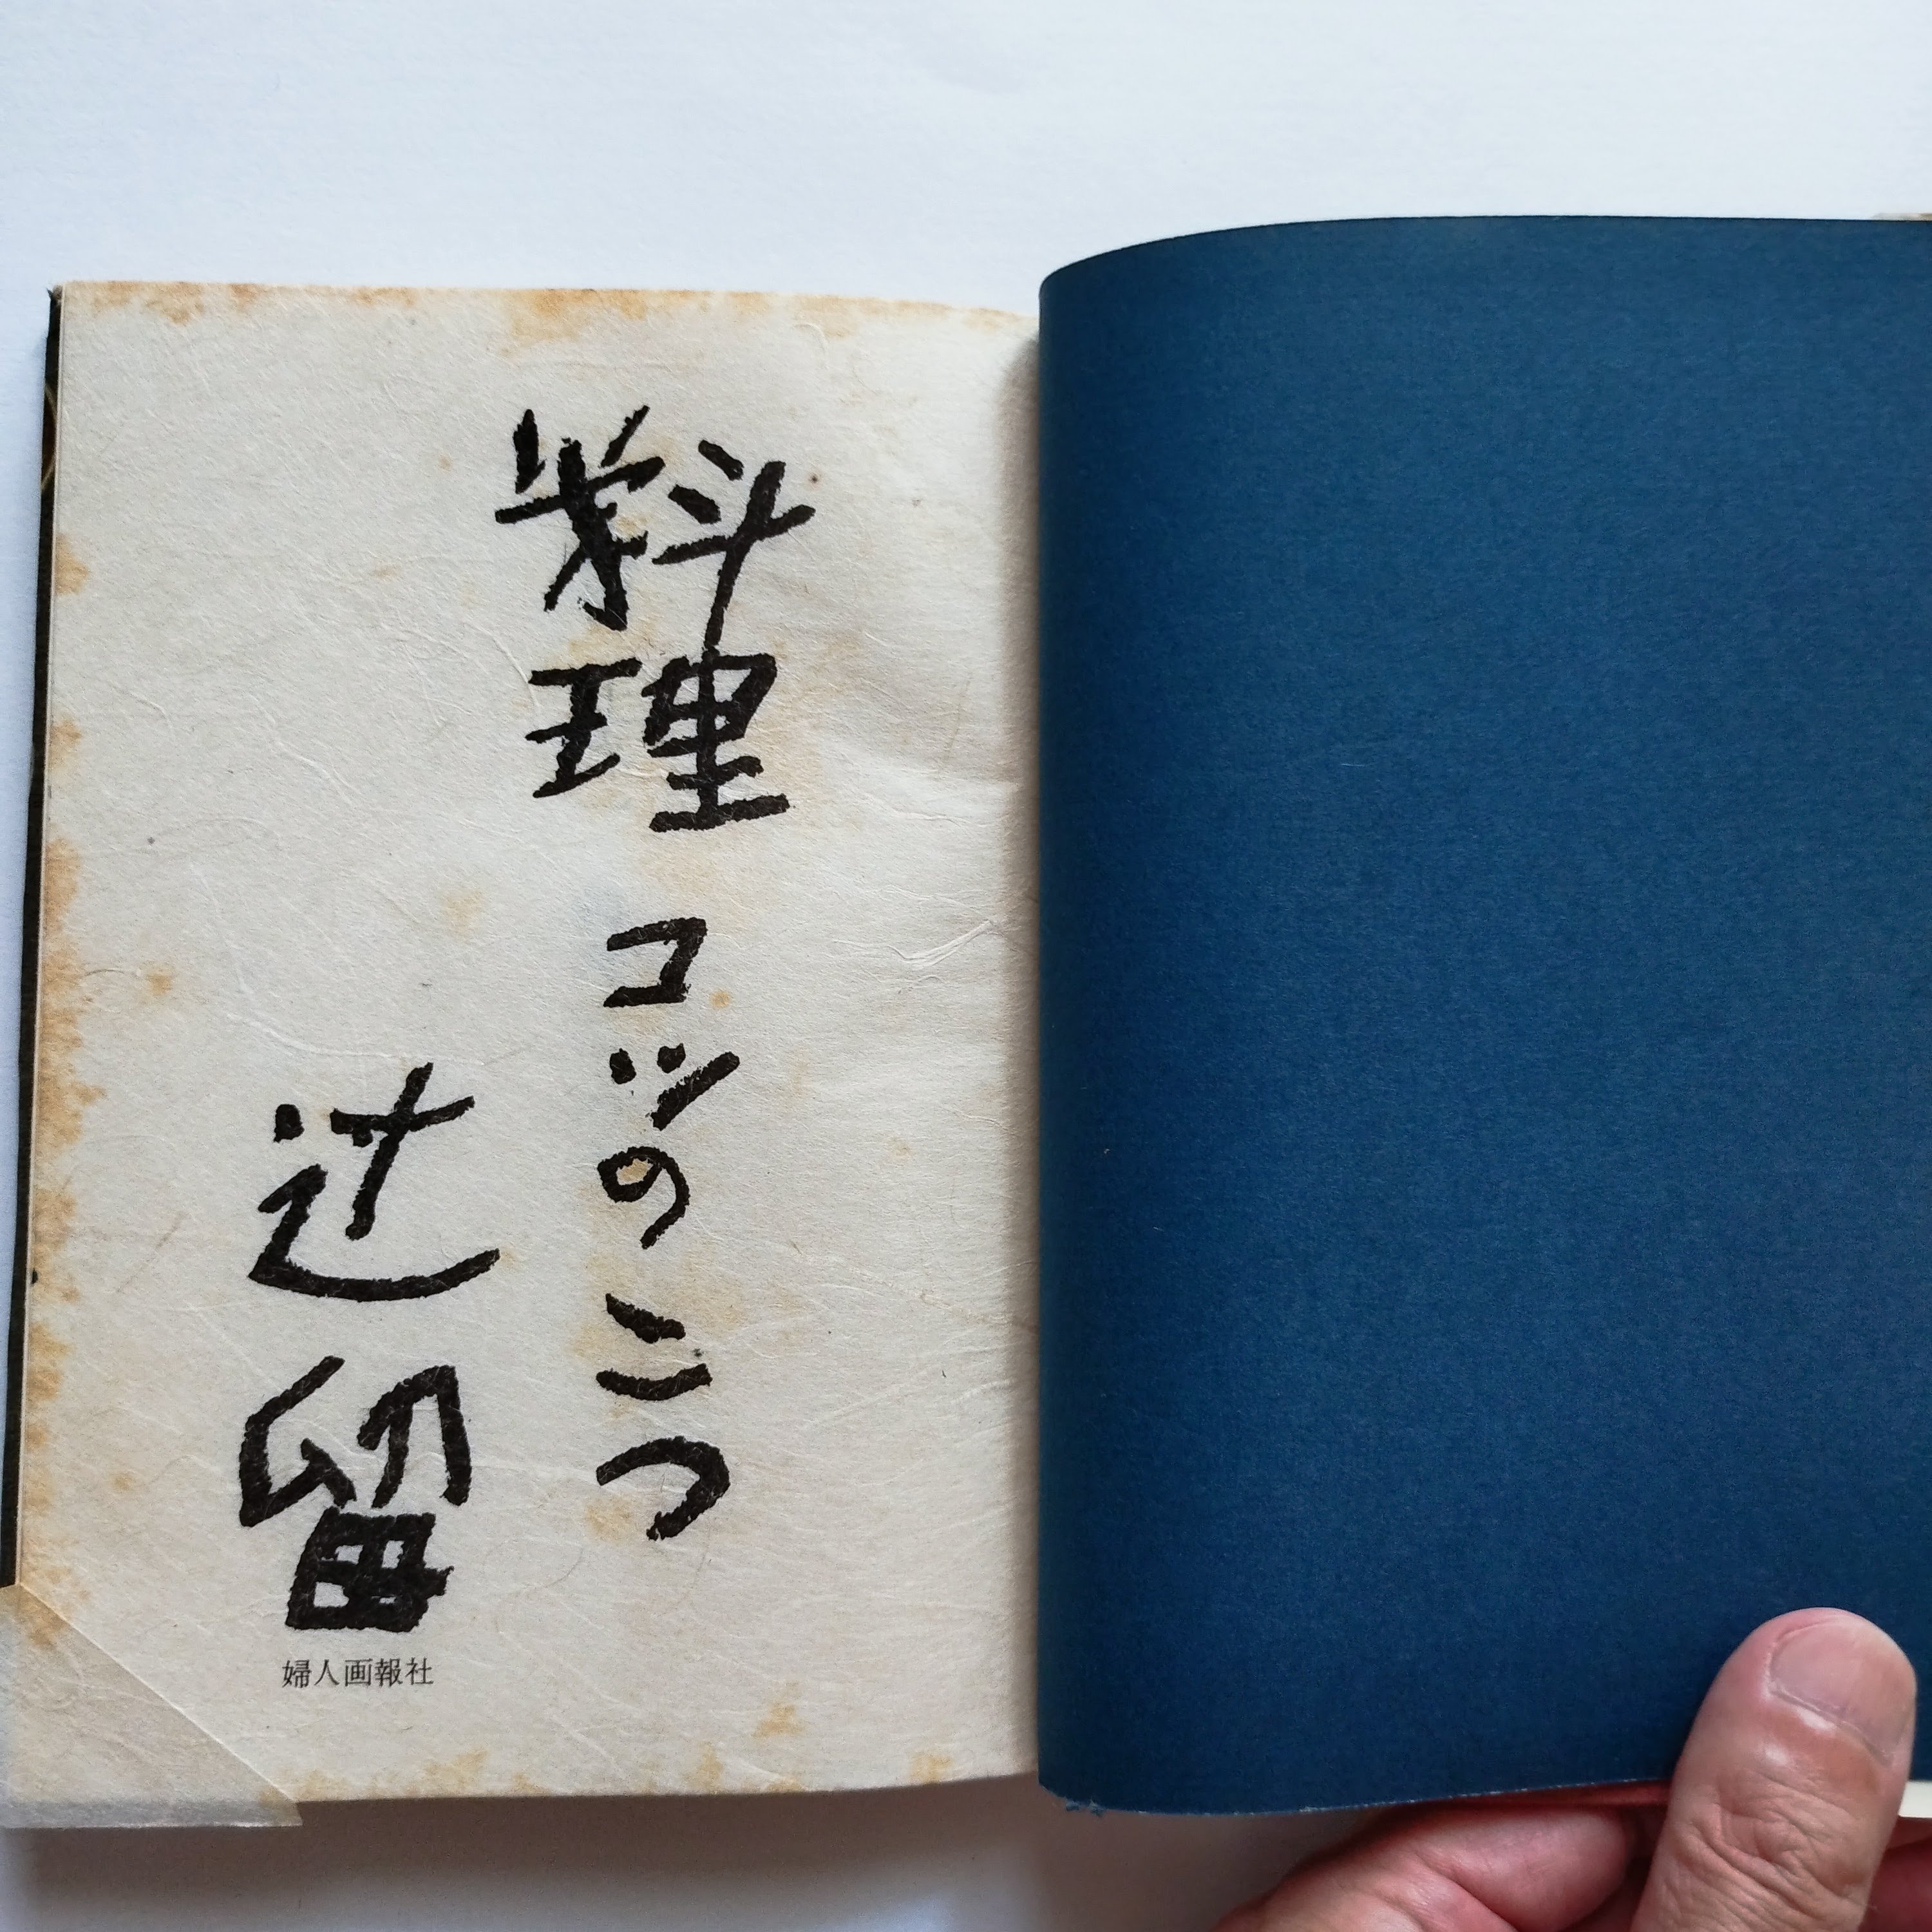 料理コツのコツ
辻留
婦人画報社